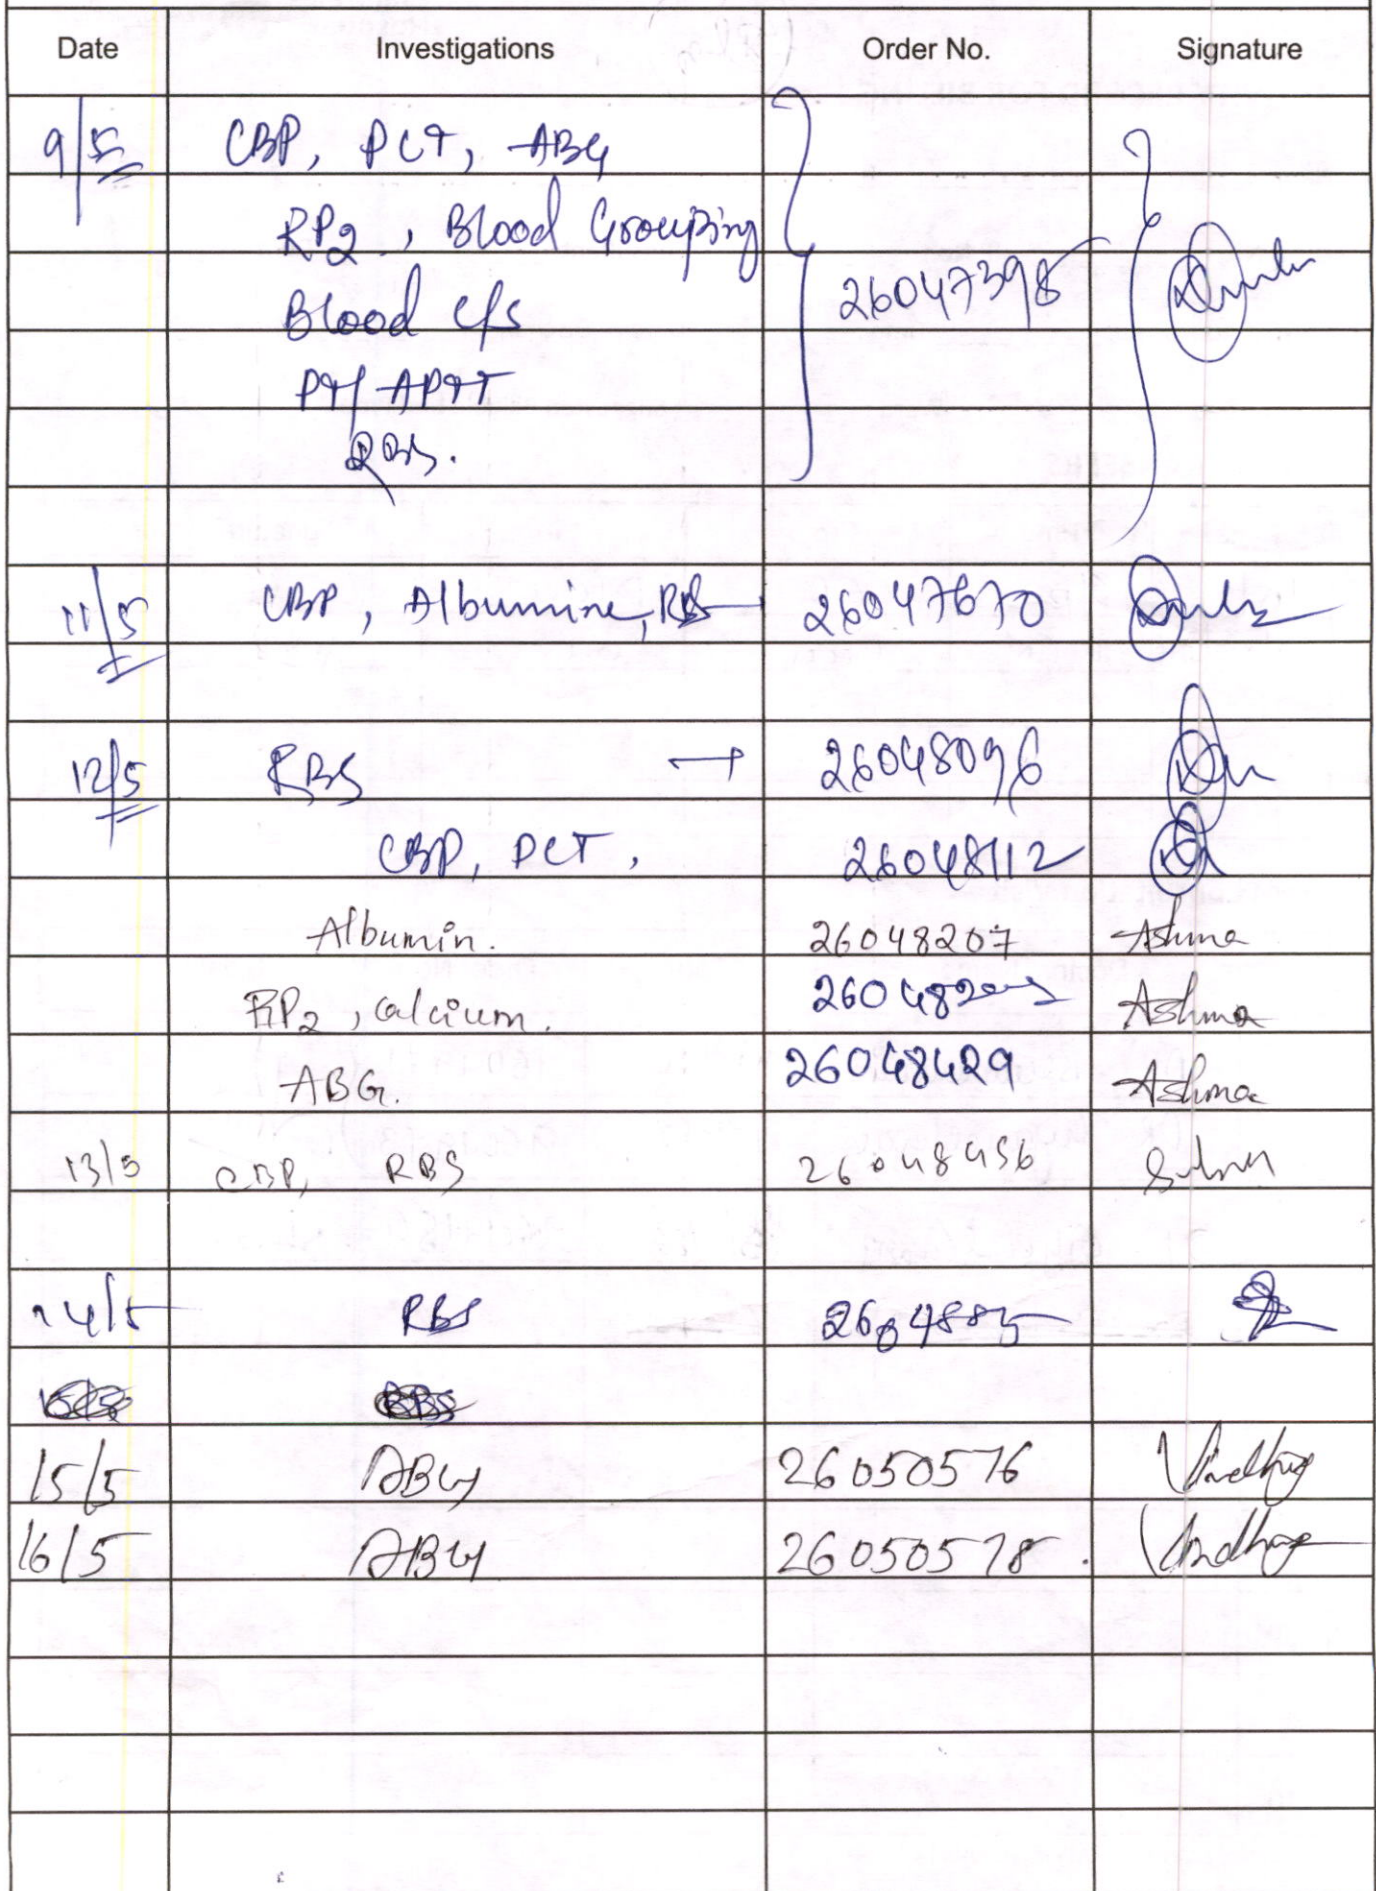 Date Investigations Order No. Signature
9/5 CBP, PCT, ABG
RP2, Blood Grouping
Blood c/s 26047398
PT/APTT
RBS.
11/5 CBP, Albumine, RBS 26047670
12/5 RBS → 26048096
CBP, PCT, 26048112
Albumin. 26048207 Ashma
RP2, calcium. Ashma
ABG. 26048429 Ashma
13/5 CBP, RBS 26048456
14/5 RBS
15/5 ABG 26050576
16/5 ABG 26050578.